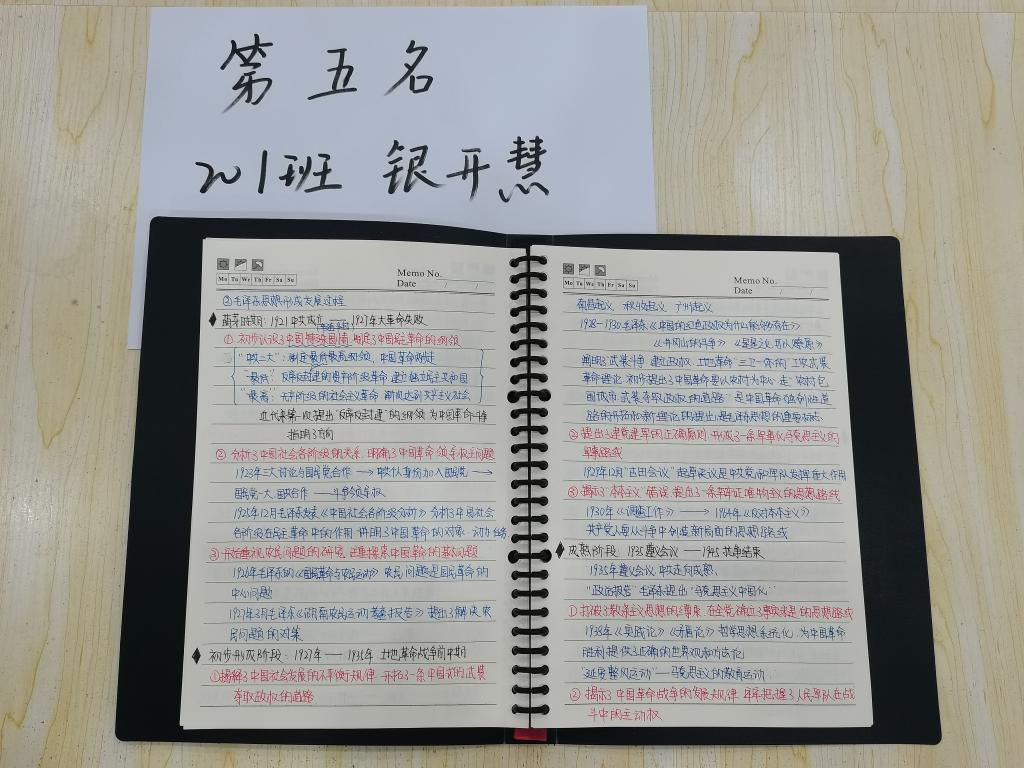 第五名
201班 银开慧
Memo No.
Date / /
Mo Tu We Th Fr Sa Su
②毛泽东思想形成发展过程
萌芽时期:1921中共成立——1927年大革命失败
①初步认识了中国 国情,制定了中国民主革命的纲领
"中共二大":制定最低最高纲领,中国革命两步走
"最低":反帝反封建的资产阶级革命 建立独立民主共和国
"最高":无产阶级的社会主义革命 前途达到共产主义社会
近代来第一次提出"反帝反封建"的纲领 为中国革命
指明了方向
②分析了中国社会各阶级的关系,明确了中国革命领导权问题
1923年三大讨论与国民党合作 → 中共以个人身份加入国民党 →
国民党一大、国共合作——斗争领导权
1925年12月毛泽东发表《中国社会各阶级分析》分析了中国社会
各阶级在民主革命中的作用 讲明了中国革命的对象、动力
③开始重视农民问题的研究,注重探索中国革命的基本问题
1926年毛泽东的《国民革命与农民运动》农民问题是国民革命的
中心问题
1927年3月毛泽东《湖南农民运动考察报告》提出了解决农
民问题的对策
初步形成阶段:1927年——1935年 土地革命战争前中期
①揭释了中国社会发展的不平衡大规律 开拓了一条中国式的武装
夺取政权的道路
Memo No.
Date / /
Mo Tu We Th Fr Sa Su
南昌起义 秋收起义 广州起义
1928-1930毛泽东《中国的红色政权为什么能够存在》
《井冈山的斗争》《星星之火,可以燎原》
阐明了武装斗争 建立政权、土地革命"三位一体"的工农武装
革命理论,初步提出了中国革命要以农村为中心,走"农村包
围城市 武装夺取政权的道路"是中国革命
路的开拓和新理论的提出,是毛泽东思想的重要标志、
②提出了建党建军的正确原则,形成了一条军事化马克思主义的
军事路线
1929年12月"古田会议"起草决议是中共党和军队发挥重大作用
③揭示了"本本主义"错误 提出了一条辩证唯物主义的思想路线
1930年《调查工作》——→1964年《反对本本主义》
共产党人要从斗争中创造新局面的思想路线
成熟阶段:1935遵义会议——1945抗争结束
1935年遵义会议 中共走向成熟、
"政治报告" 毛泽东提出"马克思主义中国化"
①打破了教条主义思想的束缚 在全党确立了实事求是的思想路线
1938年《实践论》《矛盾论》哲学思想系统化,为中国革命
胜利提供了正确的世界观和方法论
"延安整风运动"——马克思主义的教育运动
②揭示了中国革命战争的发展大规律,牢牢把握了人民军队在战
斗中的主动权